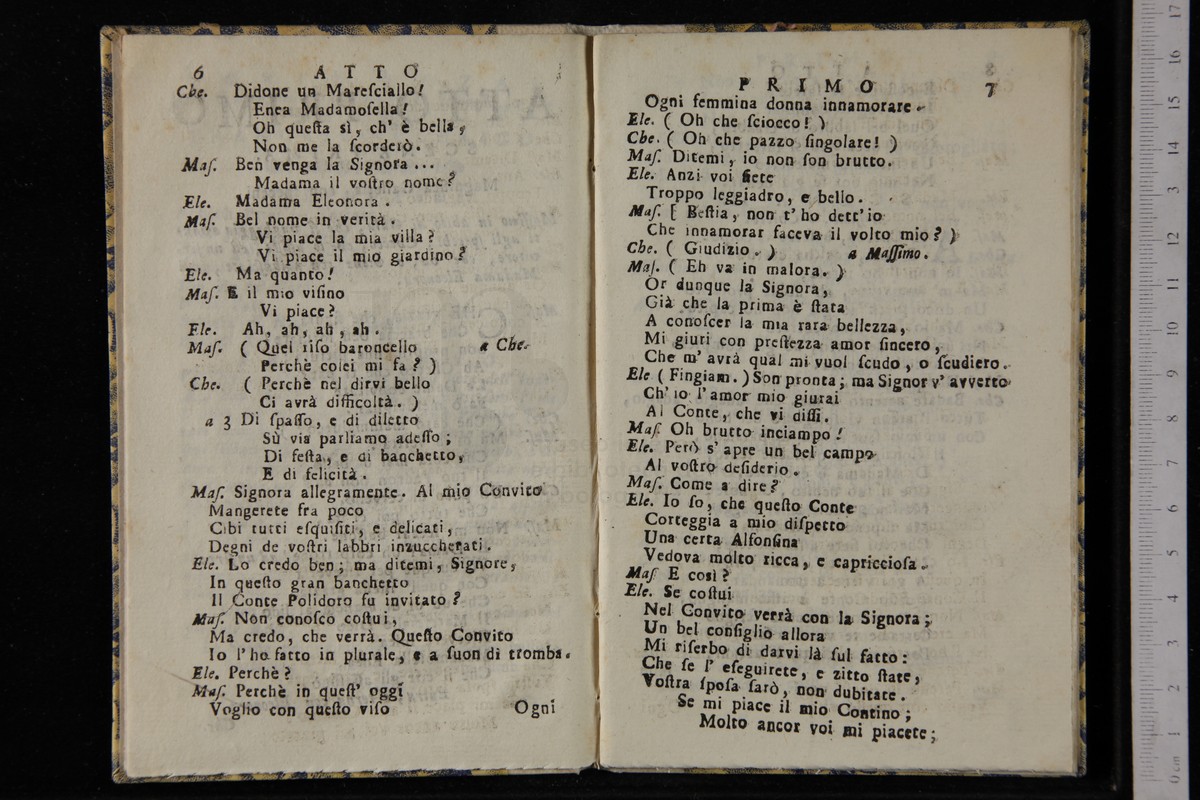 6 ATTO
Che. Didone un Mareſciallo!
Enea Madamoſella!
Oh queſta sì, ch' è bella,
Non me la ſcorderò.
Maſ. Ben venga la Signora ...
Madama il voſtro nome?
Ele. Madama Eleonora.
Maſ. Bel nome in verità.
Vi piace la mia villa?
Vi piace il mio giardino?
Ele. Ma quanto!
Maſ. E il mio viſino
Vi piace?
Ele. Ah, ah, ah, ah.
Maſ. ( Quel riſo baroncello a Che.
Perchè colei mi fa? )
Che. ( Perchè nel dirvi bello
Ci avrà difficoltà. )
a 3 Di ſpaſſo, e di diletto
Sù via parliamo adeſſo;
Di feſta, e di banchetto,
E di felicità.
Maſ. Signora allegramente. Al mio Convito
Mangerete fra poco
Cibi tutti eſquiſiti, e delicati,
Degni de voſtri labbri inzuccherati.
Ele. Lo credo ben; ma ditemi, Signore,
In queſto gran banchetto
Il Conte Polidoro fu invitato?
Maſ. Non conoſco coſtui,
Ma credo, che verrà. Queſto Convito
Io l' ho fatto in plurale, e a ſuon di tromba.
Ele. Perchè?
Maſ. Perchè in queſt' oggi
Voglio con queſto viſo
Ogni
PRIMO 7
Ogni femmina donna innamorare.
Ele. ( Oh che ſciocco! )
Che. ( Oh che pazzo ſingolare! )
Maſ. Ditemi, io non ſon brutto.
Ele. Anzi voi ſiete
Troppo leggiadro, e bello.
Maſ. [ Beſtia, non t' ho dett' io
Che innamorar faceva il volto mio? )
Che. ( Giudizio. ) a Maſſimo.
Maſ. ( Eh va in malora. )
Or dunque la Signora,
Già che la prima è ſtata
A conoſcer la mia rara bellezza,
Mi giuri con preſtezza amor ſincero,
Che m' avrà qual mi vuol ſcudo, o ſcudiero.
Ele ( Fingiam. ) Son pronta; ma Signor v' avverto
Ch' io l' amor mio giurai
Al Conte, che vi diſſi.
Maſ. Oh brutto inciampo!
Ele. Però s' apre un bel campo
Al voſtro deſiderio.
Maſ. Come a dire?
Ele. Io ſo, che queſto Conte
Corteggia a mio diſpetto
Una certa Alfonſina
Vedova molto ricca, e capriccioſa.
Maſ E così?
Ele. Se coſtui
Nel Convito verrà con la Signora;
Un bel conſiglio allora
Mi riſerbo di darvi là ſul fatto:
Che ſe l' eſeguirete, e zitto ſtate,
Voſtra ſpoſa ſarò, non dubitate.
Se mi piace il mio Contino;
Molto ancor voi mi piacete;